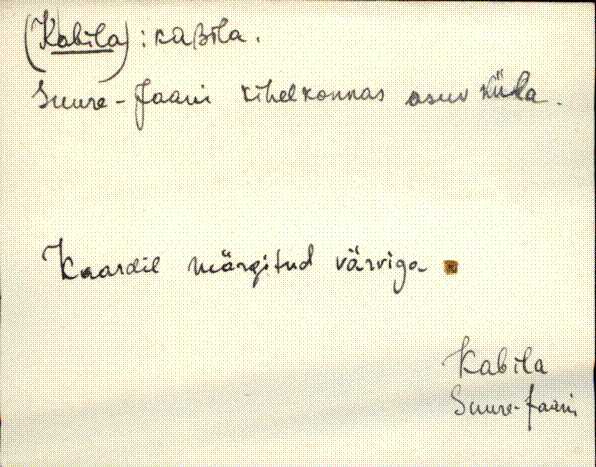 (Kabila) : kaBila.
Suure-Jaani kihelkonnas asuv küla.
Kaardil märgitud värviga
Kabila
Suure-Jaani